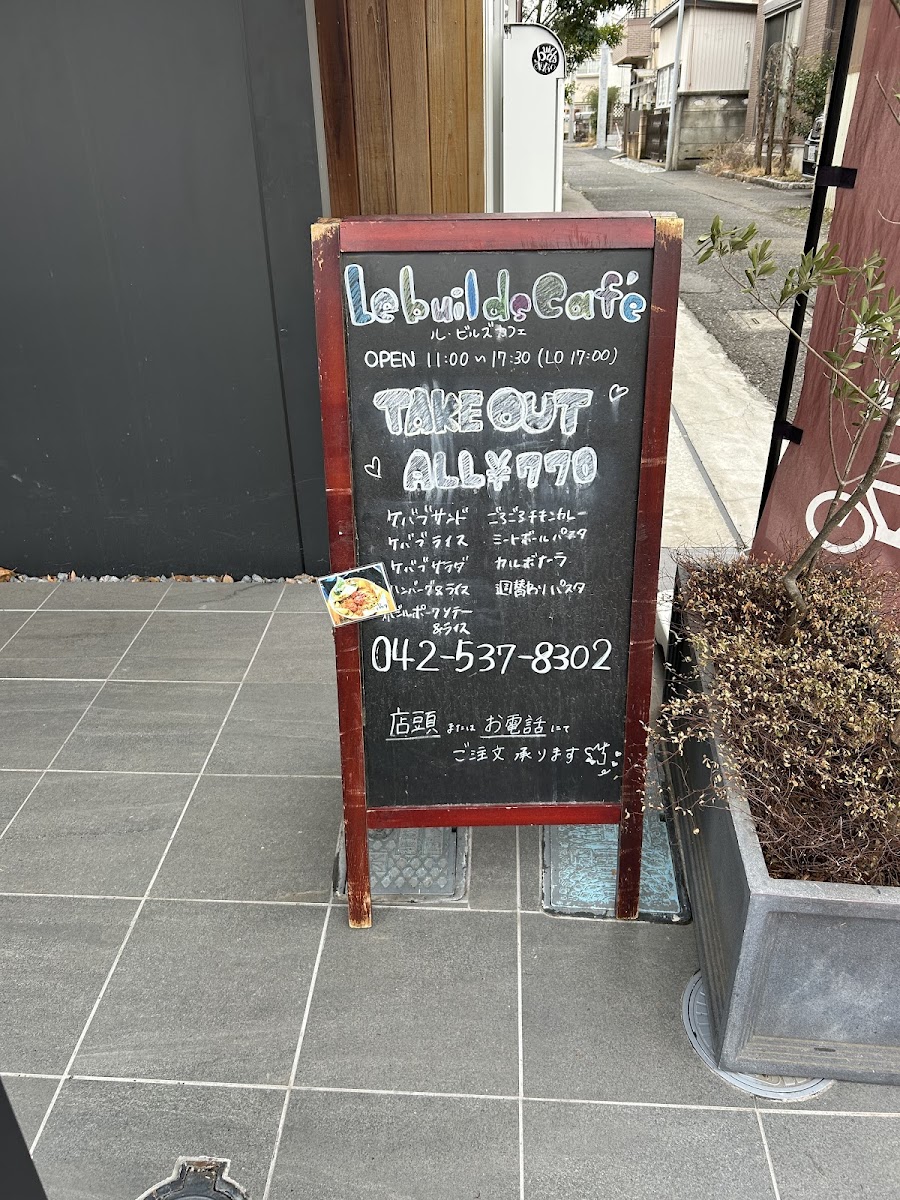 Le builds Café
ル・ビルズカフェ
OPEN 11:00〜17:30 (LO 17:00)
TAKE OUT
ALL ¥770
ケバブサンド ごろごろチキンカレー
ケバブライス ミートボールパスタ
ケバブサラダ カルボナーラ
ハンバーグ&ライス 週替わりパスタ
ポークソテー
&ライス
042-537-8302
店頭 または お電話 にて
ご注文 承ります